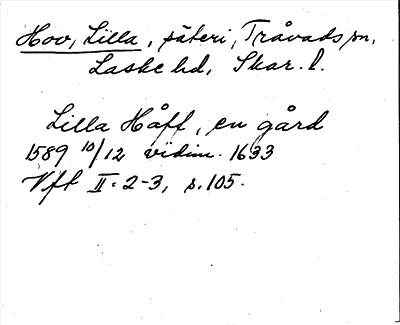 Hov, Lilla, säteri, Tråvads sn,
Laske hd, Skar. l.
Lilla Håff, en gård
1589 10/12 vidim. 1633
Vft II: 2-3, s. 105.